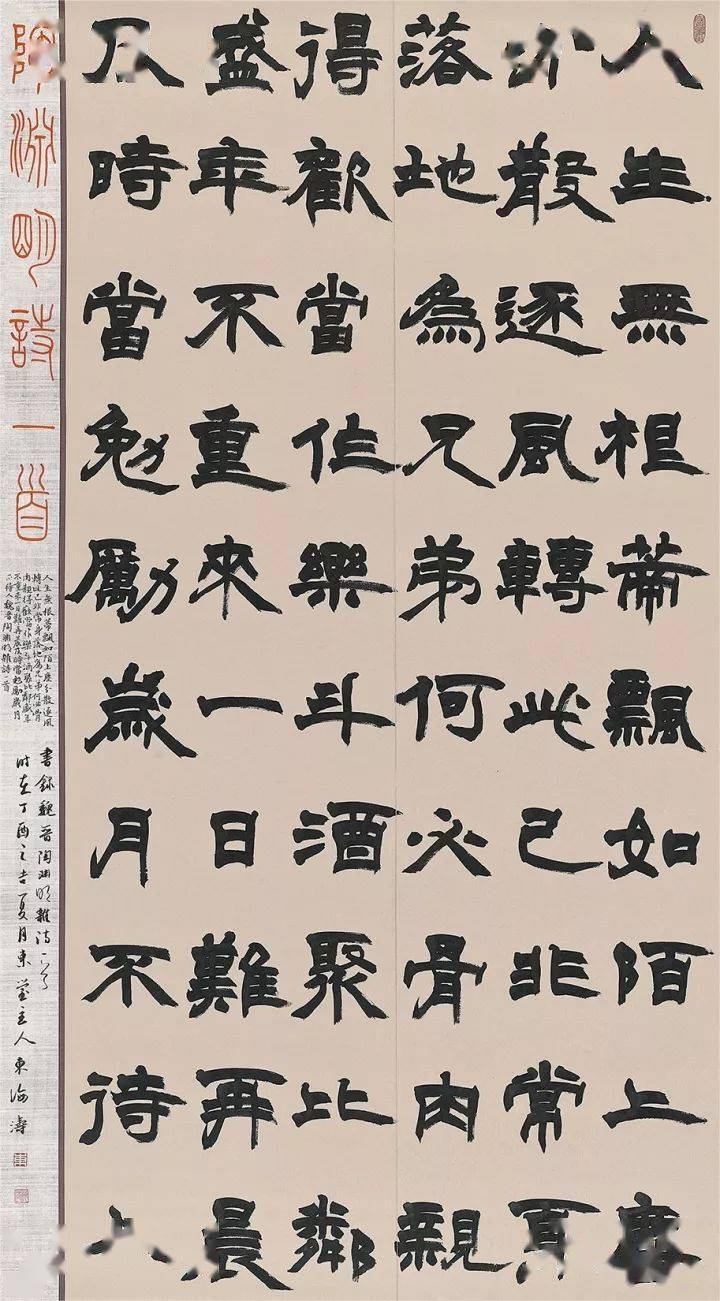 人生無根蒂飄如陌上塵
分散逐風轉此已非常身
落地為兄弟何必骨肉親
得歡當作樂斗酒聚比鄰
盛年不重來一日難再晨
及時當勉勵歲月不待人
陶淵明詩一首
人生無根蒂飄如陌上塵分散逐風
轉此已非常身落地為兄弟何必骨
肉親得歡當作樂斗酒聚比鄰盛年
不重來一日難再晨及時當勉勵歲月
不待人魏晉陶淵明雜詩一首
書錄魏晉陶淵明雜詩一首
时在丁酉之吉夏月東主人東海濤